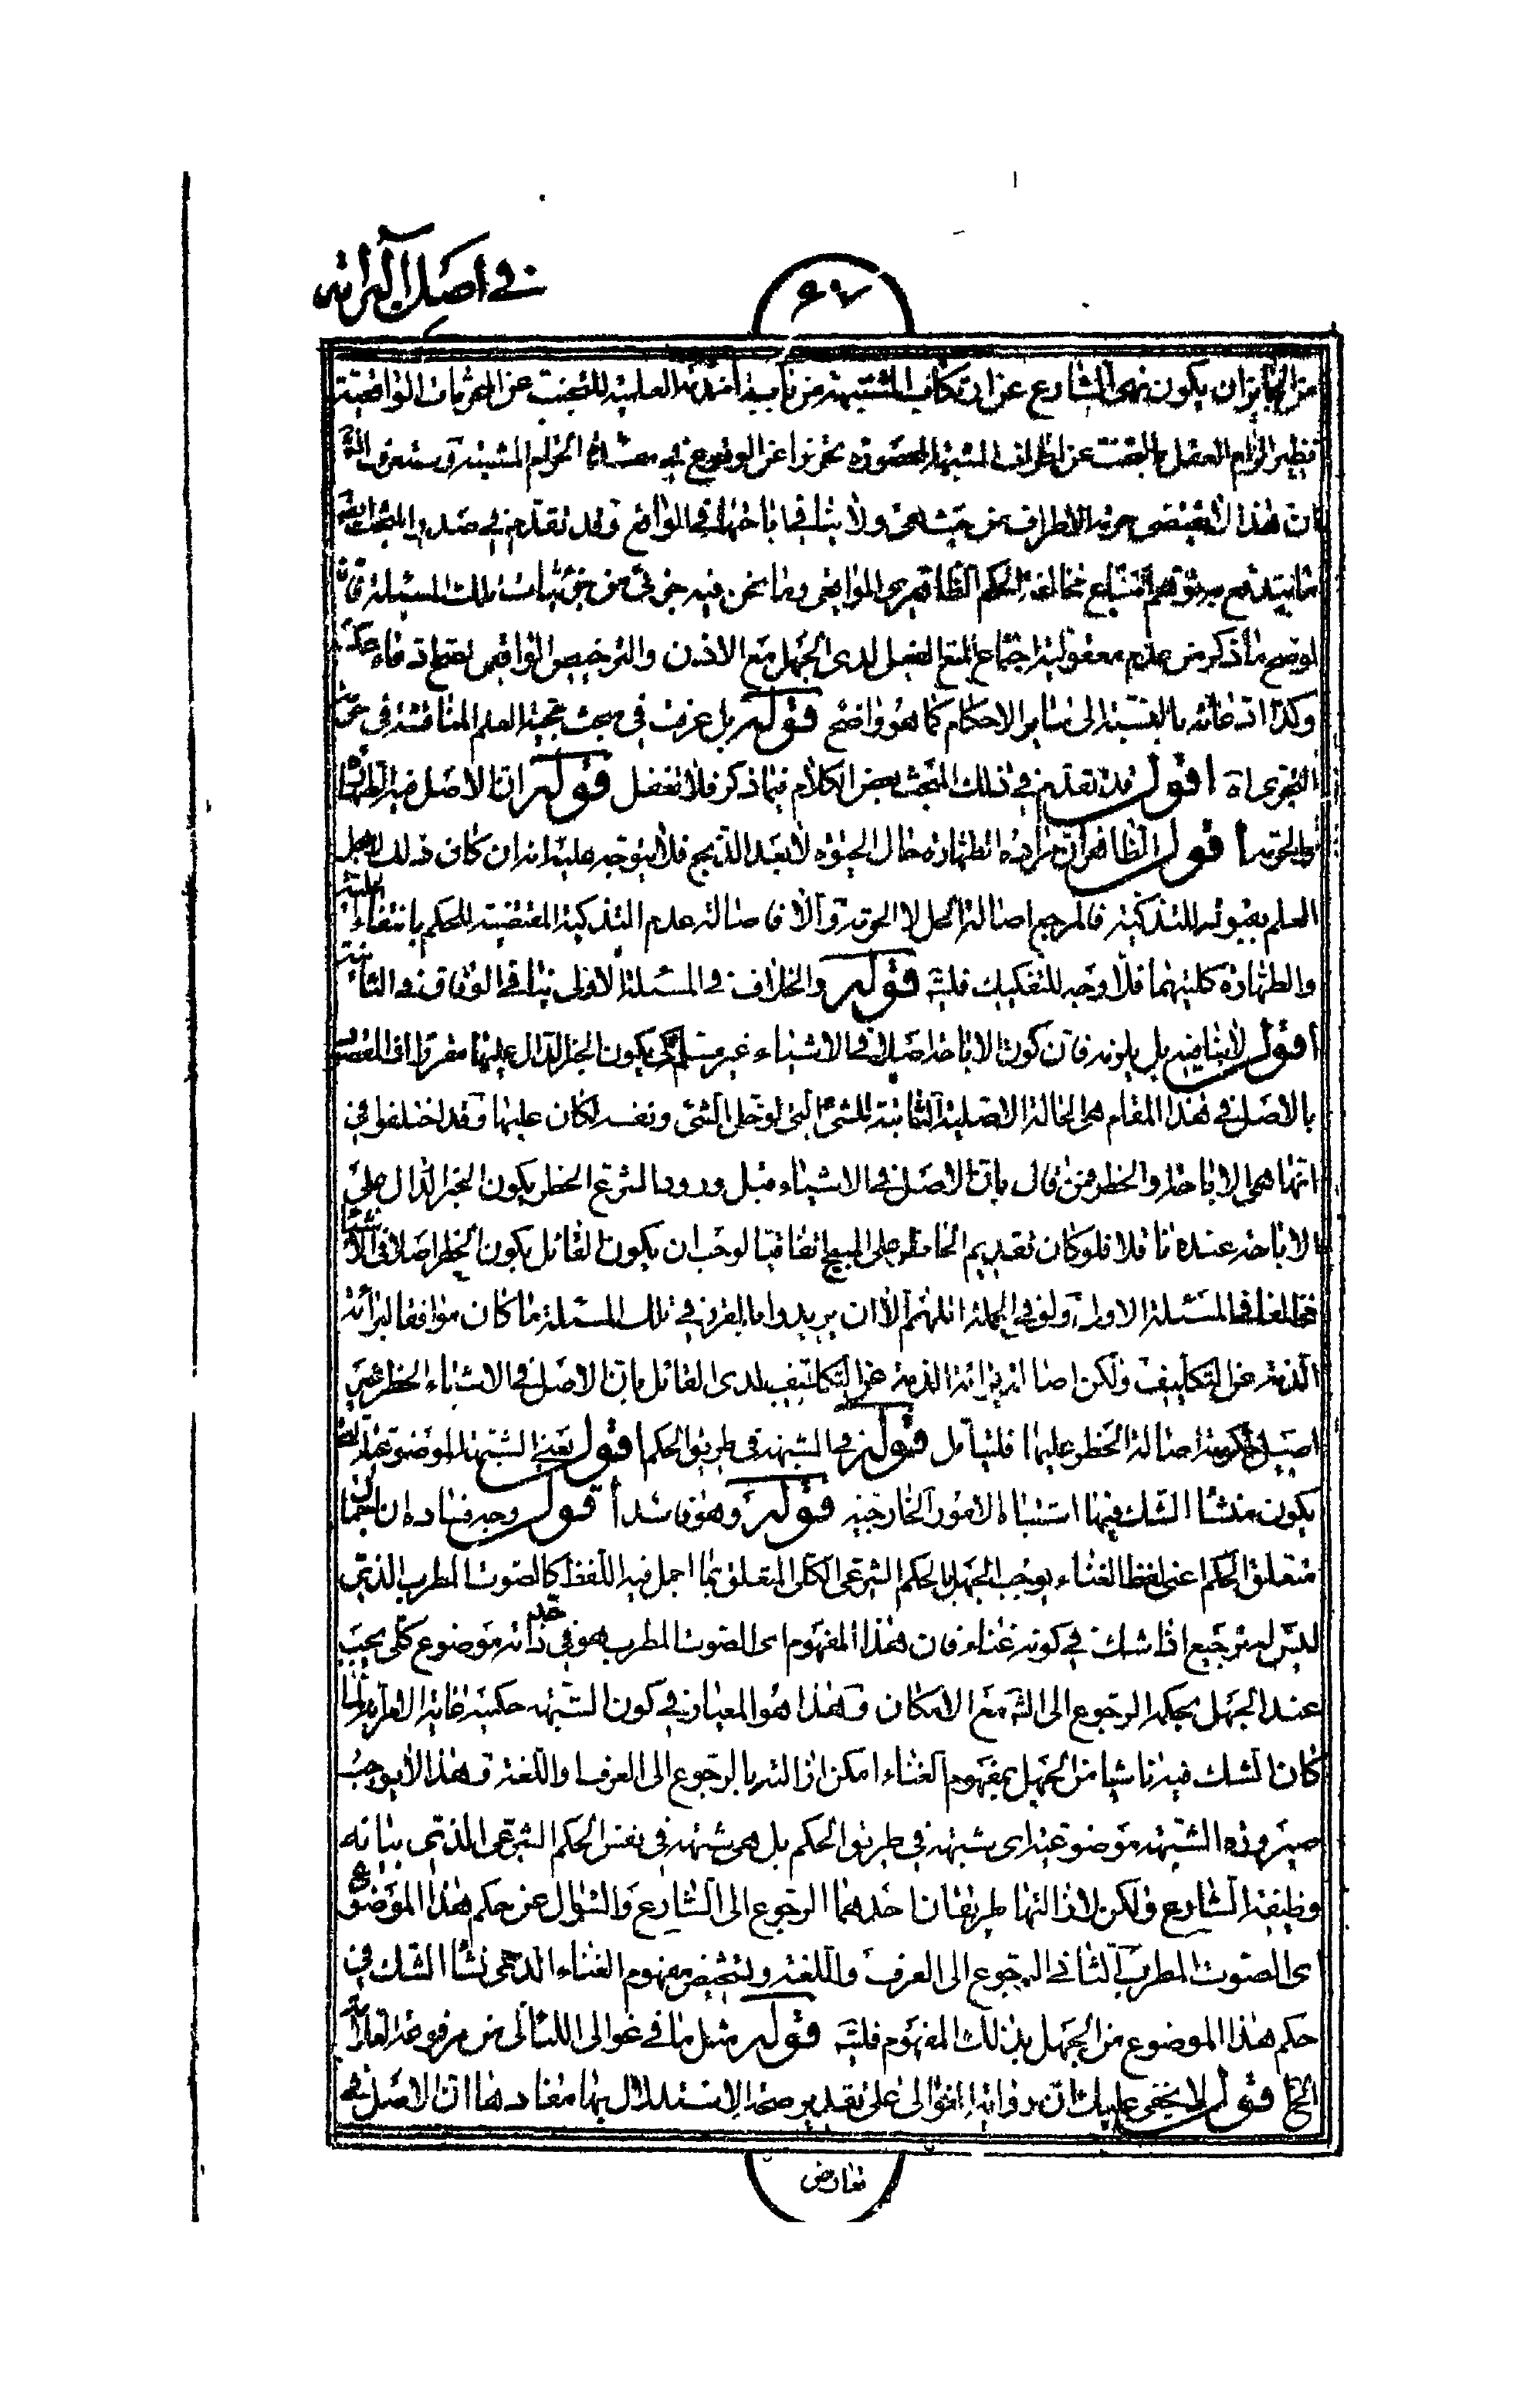 في اصل البرائة
من الجايز ان يكون نهى الشارع عن ارتكاب المشتبه من باب المقدمة العلمية للتجنب عن المحرمات الواقعية
نظير الزام العقل بالتجنب عن اطراف الشبهة المحصورة تحرزا عن الوقوع في مفسدة الحرام المشتبه وستعرف انش
ان هذا لا يقتضى حرمة الاطراف من حيث هى ولا ينافي اباحتها في الواقع وقد تقدم في صدر المبحث
ما يندفع به توهم امتناع مخالفة الحكم الظاهرى الواقعى وما نحن فيه جزئى من جزئيات تلك المسئلة فان
لو صح ما ذكر من عدم معقولية اجتماع المنع الفعلى لدى الجهل مع الاذن والترخيص الواقعى لصح ادعاء
وكذا ادعائه بالنسبة الى سائر الاحكام كما هو واضح قوله بل عرفت في مبحث حجية العلم المناقشة في حرمة
التجرى اه اقول قد تقدم في ذلك المبحث بعض الكلام فيما ذكر فلا تغفل قوله ان الاصل فيه الطهارة
والحرمة اقول الظاهر ان مراده الطهارة حال الحيوة لا بعد الذبح فلا يتوجه عليه انه ان كان ذلك لاجل
العلم بقبوله للتذكية فالمرجع اصالة الحل لا الحرمة والا فاصالة عدم التذكية المقتضية للحكم بانتفاء الحلية
والطهارة كليتهما فلا وجه للتفكيك فليت قوله والخلاف في المسئلة الاولى ينافى الوفاق في الثانية
اقول لا ينافيه بل يلزمه فان كون الاباحة اصلا في الاشياء غير مسلم كى يكون الخبر الدال عليها مقررا اذ المقصود
بالاصل في هذا المقام هى الحالة الاصلية الثابتة للشئ التى لو خلى الشئ ونفسه لكان عليها وقد اختلفوا في
انها هى الاباحة او الحظر فمن قال بان الاصل في الاشياء قبل ورود الشرع الحظر يكون الخبر الدال على
الاباحة عنده ناقلا فلو كان تقديم الحاظر على المبيح اتفاقيا لوجب ان يكون القائل بكون الحظر اصلا في الاشياء
مخالفا في المسئلة الاولى ولو في الجملة اللهم الا ان يريدوا بالمقرر في تلك المسئلة ما كان موافقا لبرائة
الذمة عن التكليف ولكن اصالة برائة الذمة عن التكاليف لدى القائل بان الاصل في الاشياء الحظر غير
اصيل لحكومة اصالة الحظر عليها فليتامل قوله في الشبهة في طريق الحكم اقول يعنى الشبهة الموضوعية التى
يكون منشا الشك فيها اشتباه الامور الخارجية قوله وهو فاسد اقول وجه فساده ان اجمال
متعلق الحكم اعنى لفظ الغناء يوجب الجهل بالحكم الشرعى الكلى المتعلق بما اجمل فيه اللفظ كالصوت المطرب الذى
ليس له ترجيع اذا شك في كونه غناء فان هذا المفهوم اى الصوت المطرب هو في حد ذاته موضوع كلى يجب
عند الجهل بحكمه الرجوع الى الش مع الامكان وهذا هو المعيار في كون الشبهة حكمية غاية الامر انه لما
كان الشك فيه ناشيا من الجهل بمفهوم الغناء امكن ازالته بالرجوع الى العرف واللغة وهذا لا يوجب
صيرورة الشبهة موضوعية اى شبهة في طريق الحكم بل هى شبهة في نفس الحكم الشرعى الذى بيانه
وظيفة الشارع ولكن لازالتها طريقان احدهما الرجوع الى الشارع والسؤال عن حكم هذا الموضوع
اى الصوت المطرب الثانى الرجوع الى العرف واللغة وتشخيص مفهوم الغناء الذى نشا الشك في
حكم هذا الموضوع من الجهل بذلك المفهوم فليت قوله مثل ما في غوالى اللئالى من مرفوعة العلامة
الخ اقول لا يخفى عليك ان رواية الغوالى على تقدير صحة الاستدلال بها مفادها ان الاصل في
تعارض